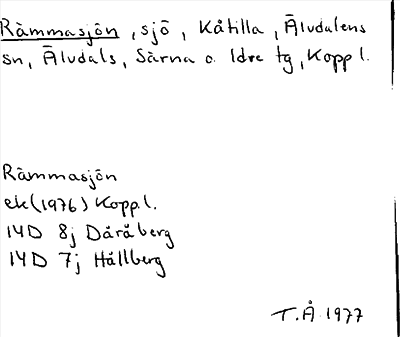 Rämmasjön, sjö, Kåtilla, Älvdalens
sn, Älvdals, Särna o. Idre tg, Koppl.
Rämmasjön
ek(1976) Koppl.
14D 8j Dåråberg
14D 7j Hållberg
T.Å 1977